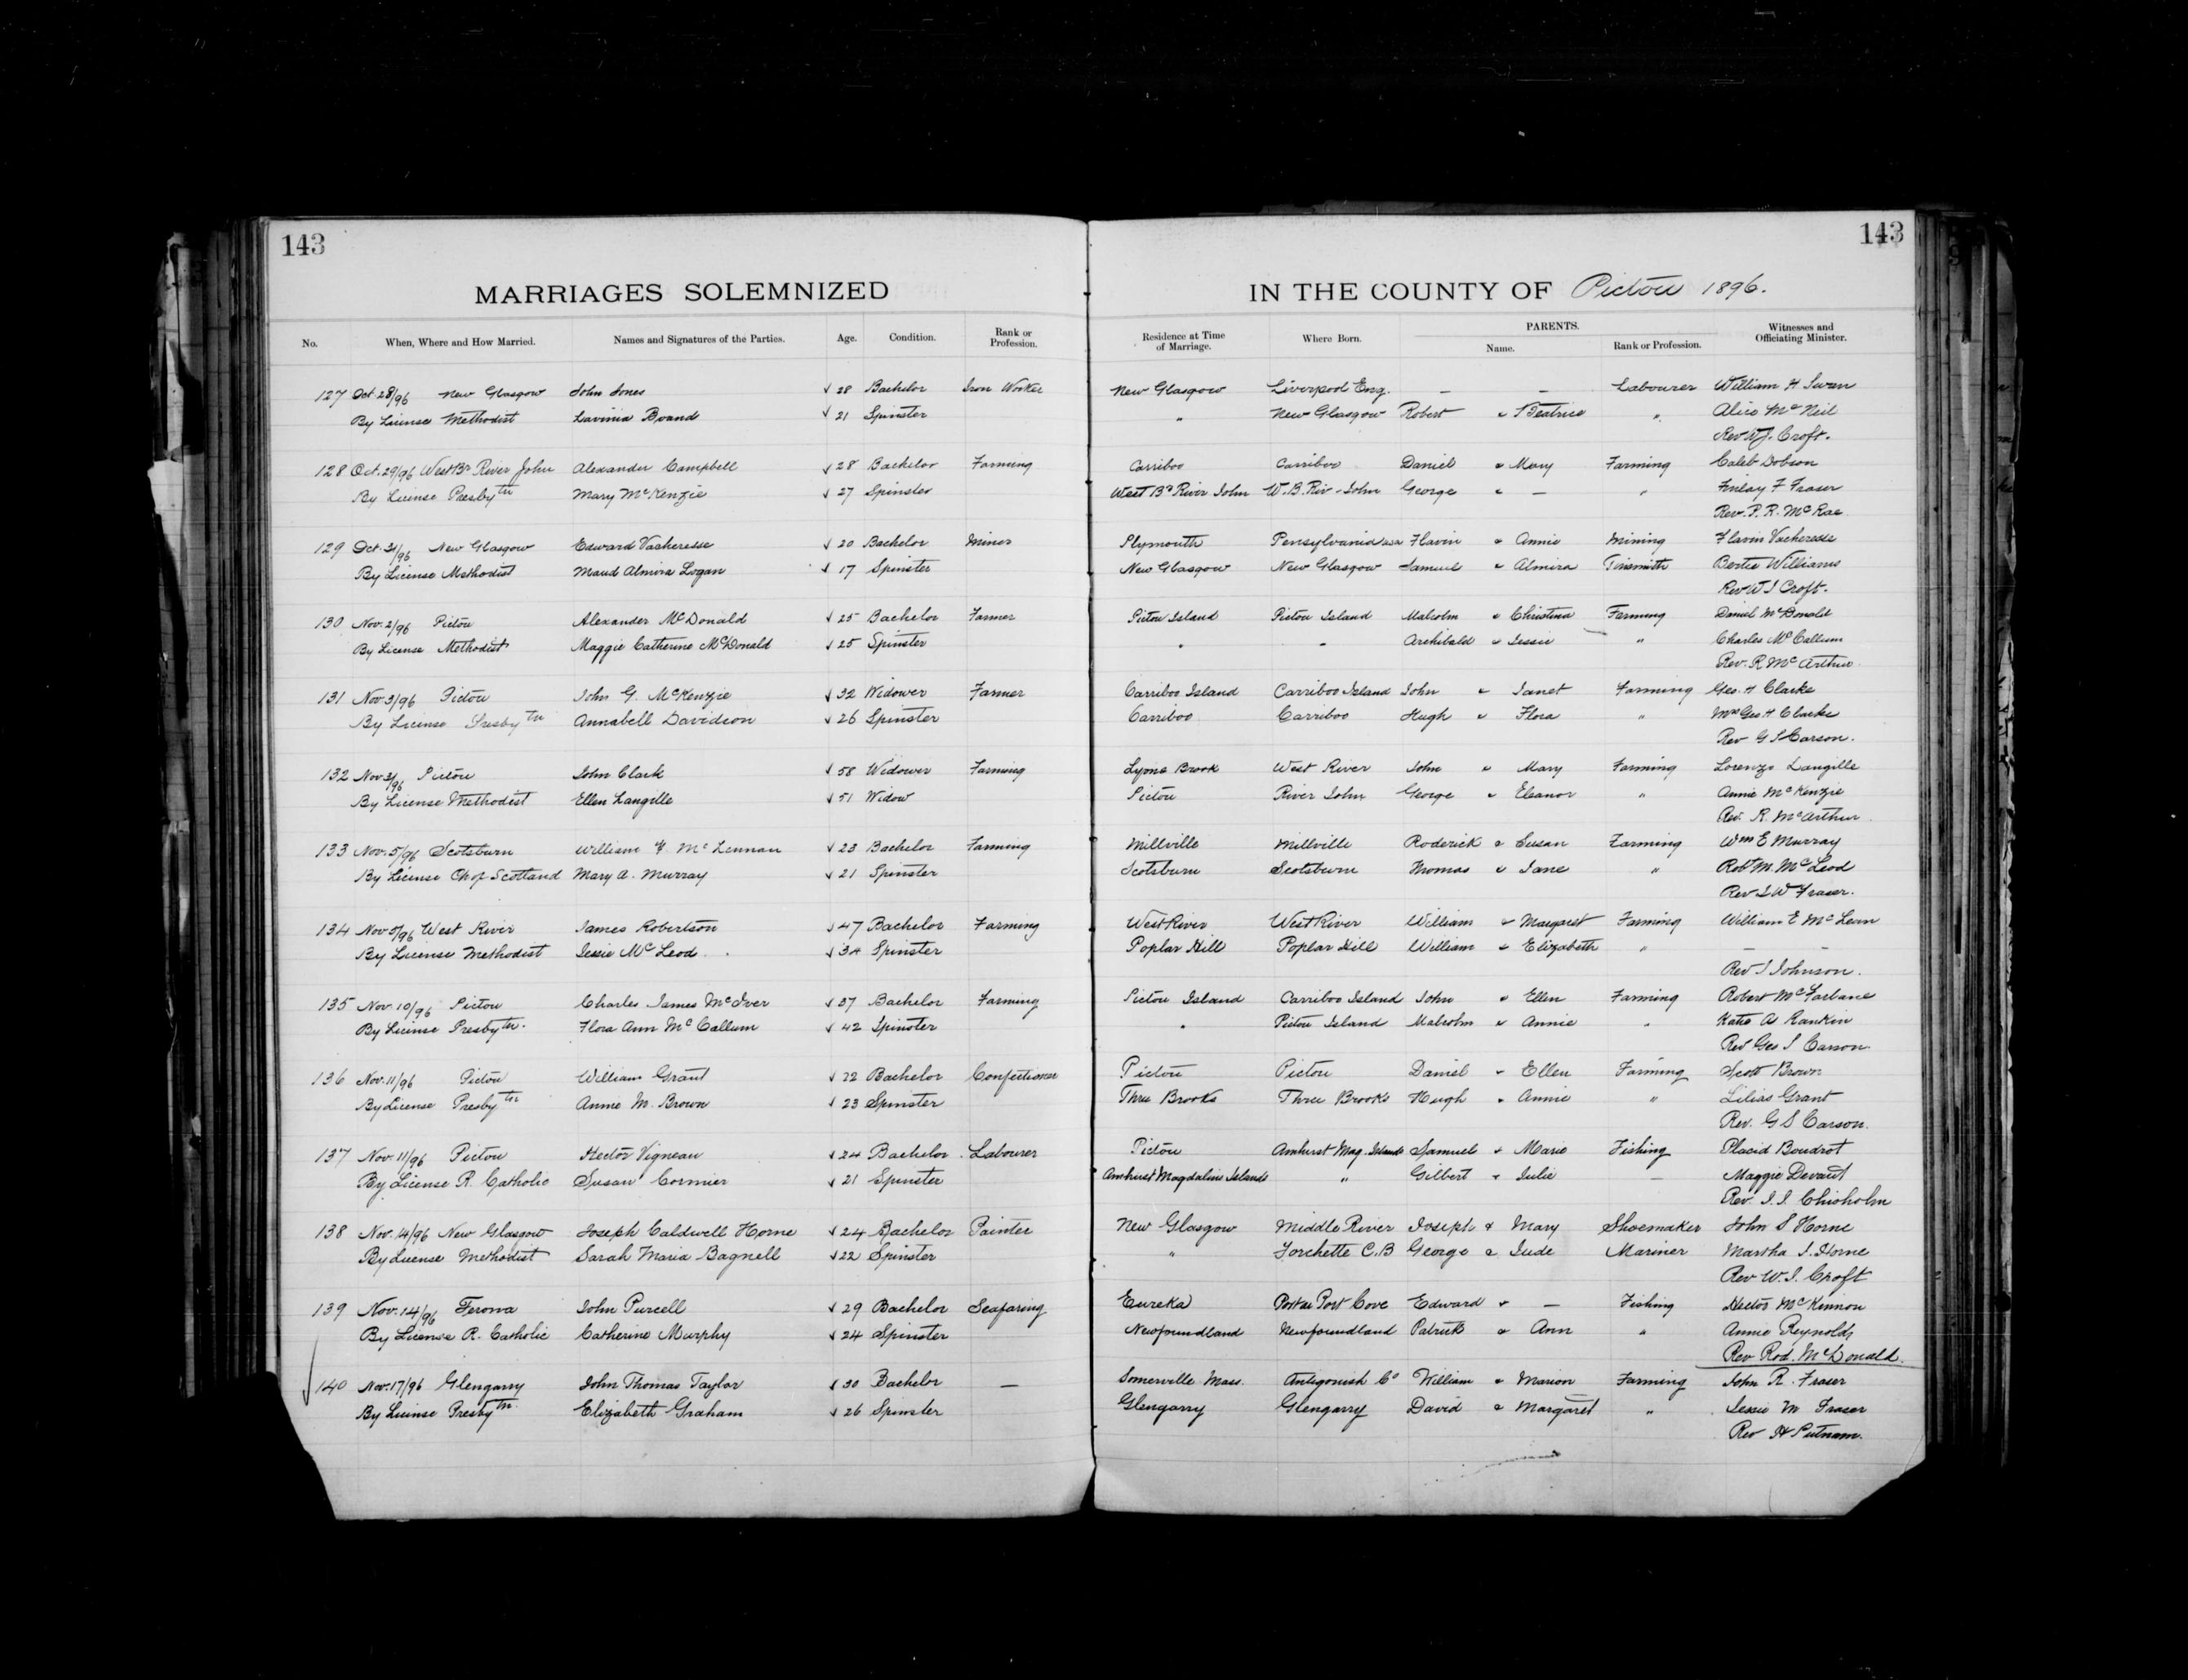 143
143
MARRIAGES SOLEMNIZED IN THE COUNTY OF Pictou 1896.
No. When, Where and How Married. Names and Signatures of the Parties. Age. Condition. Rank or Profession. Residence at Time of Marriage. Where Born. PARENTS. Name. Rank or Profession. Witnesses and Officiating Minister.
127 Oct. 28/96 New Glasgow John Jones √ 28 Bachelor Iron Worker New Glasgow Liverpool Eng. — — Labourer William H Swan
By License Methodist Lavinia Brand √ 21 Spinster " New Glasgow Robert & Beatrice " Alice McNeil
Rev W J. Croft.
128 Oct. 29/96 West Br River John Alexander Campbell √ 28 Bachelor Farming Carriboo Carriboo Daniel & Mary Farming Caleb Dobson
By License Presbytn Mary McKenzie √ 27 Spinster West Br River John W. B. Riv. John George & — " Finlay F Fraser
Rev. P. R. McRae
129 Oct. 31/96 New Glasgow Edward Vacheresse √ 20 Bachelor Miner Plymouth Pensylvania USA Flavin & Annie Mining Flavin Vacheresse
By License Methodist Maud Almira Logan √ 17 Spinster New Glasgow New Glasgow Samuel & Almira Tinsmith Bertie Williams
Rev W J Croft.
130 Nov. 2/96 Pictou Alexander McDonald √ 25 Bachelor Farmer Pictou Island Pictou Island Malcolm & Christina Farming Daniel McDonald
By License Methodist Maggie Catherine McDonald √ 25 Spinster " " Archibald & Jessie " Charles McCallum
Rev. R McArthur
131 Nov. 3/96 Pictou John G. McKenzie √ 32 Widower Farmer Carriboo Island Carriboo Island John & Janet Farming Geo. H Clarke
By License Presbytn Annabell Davidson √ 26 Spinster Carriboo Carriboo Hugh & Flora " Mrs Geo H Clarke
Rev G S Carson.
132 Nov 3/96 Pictou John Clark √ 58 Widower Farming Lyons Brook West River John & Mary Farming Lorenzo Langille
By License Methodist Ellen Langille √ 51 Widow Pictou River John George & Eleanor " Annie McKenzie
Rev. R. McArthur
133 Nov. 5/96 Scotsburn William McLennan √ 23 Bachelor Farming Millville Millville Roderick & Susan Farming Wm E Murray
By License Ch of Scotland Mary A. Murray √ 21 Spinster Scotsburn Scotsburn Thomas & Jane " Robt M. McLeod
Rev J W Fraser.
134 Nov 5/96 West River James Robertson √ 47 Bachelor Farming West River West River William & Margaret Farming William E McLean
By License Methodist Jessie McLeod √ 34 Spinster Poplar Hill Poplar Hill William & Elizabeth " — —
Rev J Johnson.
135 Nov. 10/96 Pictou Charles James McIver √ 37 Bachelor Farming Pictou Island Carriboo Island John & Ellen Farming Robert McFarlane
By License Presbytn. Flora Ann McCallum √ 42 Spinster " Pictou Island Malcolm & Annie " Katie A Rankin
Rev Geo S Carson
136 Nov. 11/96 Pictou William Grant √ 22 Bachelor Confectioner Pictou Pictou Daniel & Ellen Farming Scott Brown
By License Presbytn Annie M. Brown √ 23 Spinster Three Brooks Three Brooks Hugh & Annie " Lilias Grant
Rev. G S Carson.
137 Nov. 11/96 Pictou Hector Vigneau √ 24 Bachelor Labourer Pictou Amhurst Mag. Islands Samuel & Marie Fishing Placid Boudrot
By License R. Catholic Susan Cormier √ 21 Spinster Amhurst Magdaline Islands " Gilbert & Julie — Maggie Devant
Rev. J. J. Chisholm
138 Nov. 14/96 New Glasgow Joseph Caldwell Horne √ 24 Bachelor Painter New Glasgow Middle River Joseph & Mary Shoemaker John S Horne
By License Methodist Sarah Maria Bagnell √ 22 Spinster " Forchette C.B George & Jude Mariner Martha J. Horne
Rev W. J. Croft
139 Nov. 14/96 Ferona John Purcell √ 29 Bachelor Seafaring Eureka Port au Port Cove Edward & — Fishing Hector McKinnon
By License R. Catholic Catherine Murphy √ 24 Spinster Newfoundland Newfoundland Patrick & Ann " Annie Reynolds
Rev Rod. McDonald.
140 Nov. 17/96 Glengarry John Thomas Taylor √ 30 Bachelor — Somerville Mass. Antigonish Co William & Marion Farming John R. Fraser
By License Presbytn. Elizabeth Graham √ 26 Spinster Glengarry Glengarry David & Margaret " Jessie M Fraser
Rev H Putnam.